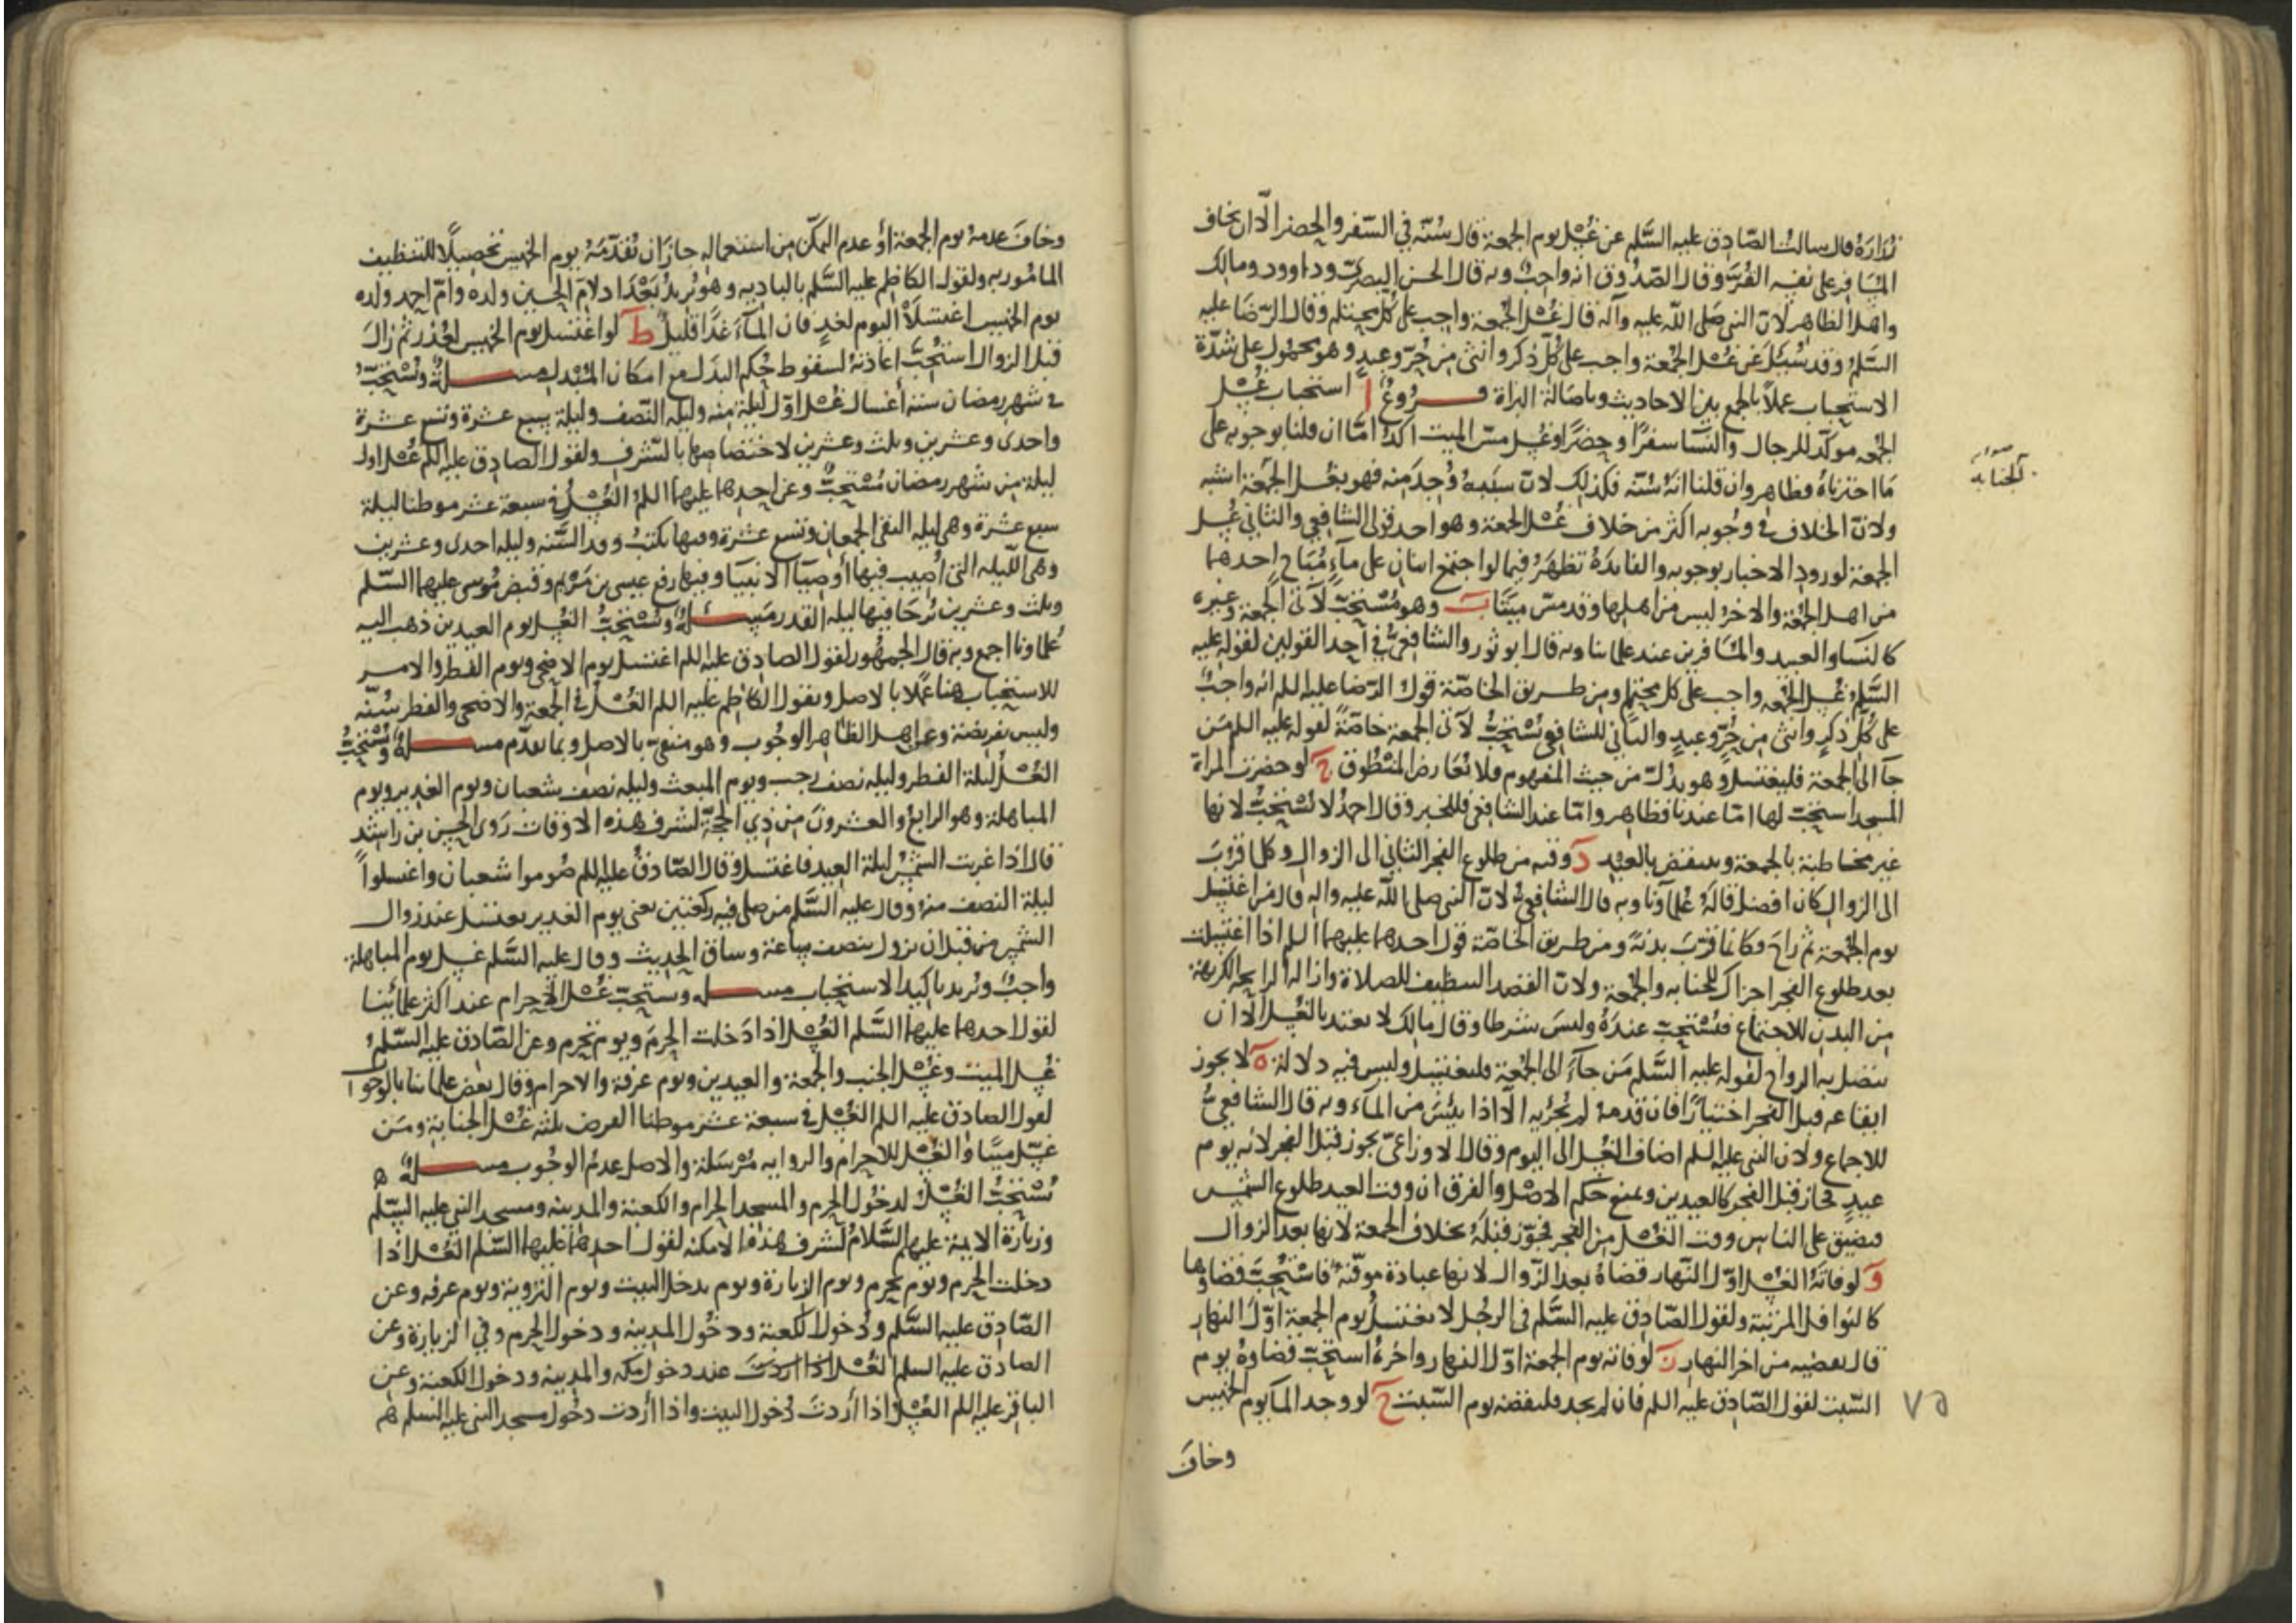 زرارة قال سالت الصّادق عليه السَّلم عن غُسْل يوم الجمعة قال سُنّة في السّفر والحضر الّا ان يخاف
المسَافر على نفسه القُرَّ وقال الصّدُوق انه واجبٌ وبه قال الحسن البصرىّ وداوود ومالك
واهل الظاهر لانّ النبى صَلى الله عليه وآله قال غُسْل الجمعة واجب على كل محتلم وقال الرّضَا عليه
السَّلمُ وقد سُئلَ عن غُسْل الجُمعة واجب على كُلّ ذكر وانثى من حُرّ وعبدٍ وهو محمول على شدّة
الاستحباب عملًا بالجمع بين الاحاديث وباصَالة البراة فــروعٌ اَ استحباب غُسْل
الجُمعه موكّد للرجال والنّسَا سفرًا وحضرًا وغسل مسّ الميت اكدُ امّا ان قلنا بوجوبه على
مَا اخترناهُ فظاهر وان قلنا انهُ سُنّه فكذلك لانّ سَببهُ وُجِدَ منه فهو بغُسل الجمعة اشبه
صوابه
الجنابه
ولانّ الخلاف في وجُوبه اكثر من خلاف غُسْل الجمعة وهو احد قولى الشافعي والثاني غُسل
الجمعة لورود الاخبار بوجوبه والفايدة تظهَرُ فيما لو اجتمع اثنان على مآءٍ مُبَاح احدهما
من اهل الجُمعَة والاخرُ ليس من اهلها وقد مسّ ميّتًا بَ وهو مُسْتحبّ لآتى الجُمعة وغيره
كالنسَا والعبيد والمسَافرين عند علمائنا وبه قال ابو ثور والشافعىّ في احد القولين لقوله عليه
السَّلم غُسل الجُمعه واجب على كل محتلم ومن طريق الخاصّة قول الرّضا عليه اللم انه واجبٌ
على كُلّ ذكرٍ وانثى من حُرّ وعبدٍ والثّاني للشافعي يُسْتحبُّ لآتى الجمعة خاصّةً لقوله عليه اللم مَن
جآ الى الجمعة فليغتسل وهو يدُلّ من حيث المفهوم فلا يُعَارض المنْطُوق جَ لو حضرت المراة
المسجد استحبّ لها امّا عندنا فظاهر وامّا عند الشافعي فللخبر وقال احمدُ لا يُسْتحبُّ لانها
غير مخاطبة بالجمعة وينتقض بالعبد دَ وقته من طلوع الفجر الثاني الى الزوال وكلما قرُبَ
الى الزوال كان افضل قالهُ علمآؤنا وبه قال الشافعىّ لانّ النبى صلى الله عليه واله قال من اغتسل
يوم الجُمعة ثم راحَ فكانما قرّبَ بدنةً ومن طريق الخاصّة قول احدهما عليهما اللم اذا اغتسلت
بعد طلوع الفجر اجزاك للجنابه والجُمعة ولانّ القصد التنظيف للصلاة وازالة الرايحة الكريهة
من البدن للاجتماع فيُسْتحبّ عندَهُ وليسَ شرطا وقال مالك لا يعتد بالغُسل الّا ان
يتصل به الرواح لقوله عليه السَّلم مَن جآءَ الى الجُمعة فليغتسل وليس فيه دلالة هَ لا يجوز
ايقاعه قبل الفجر اختيارًا فان قدمهُ لم يُجْزيه الّا اذا يئسَ من المآء وبه قال الشافعىُّ
للاجماع ولان النبى عليه اللم اضاف الغُسل الى اليوم وقال الاوزاعىّ يجوز قبل الفجر لانه يوم
عيدٍ فجاز قبل الفجر كالعيدين ويمنع حكم الاصل والفرق ان وقت العيد طلوع الشمس
فيضيق على الناس ووقت الغُسْل من الفجر فجوّز قبلَهُ بخلاف الجمعة لانها بعد الزوال
وَ لو فاتَهُ الغُسْل اوّلَ النّهار قضاهُ بعد الزّوال لانها عبادة موقّتة فاسْتُحبّ قضاؤها
كالنوافل المرتبة ولقول الصّادق عليه السَّلم في الرجُل لا يغتسلُ يوم الجمعة اوّلَ النهار
قال يقضيه من اخر النهار زَ لو فاته يوم الجمعة اوّل النهار واخرهُ استحبّ قضاوهُ يوم
السّبت لقول الصّادق عليه اللم فان لم يجد فليقضه يوم السّبت حَ لو وجد المآ يوم الخميس
٧٥
وخافَ
وخافَ عدمهُ يوم الجمعة اوْ عدم التمكّن من استعماله جازَ ان يُقدّمَهُ يوم الخميس تحصيلًا للتنظيف
المامُور به ولقول الكاظم عليه السَّلم بالباديه وهو يُريدُ بَغْدَاد لامّ الحسين ولده وامّ احمد ولده
يوم الخميس اغتسلَا اليوم لغدٍ فان المآءَ غدًا قليلٌ طَ لو اغتسل يوم الخميس لعُذر ثم زالَ
قبل الزوال استُحبّ اعادَتهُ لسقوط حُكم البدَل مع امكان المُبْدل مســلةٌ ويُسْتحبُّ
فى شهر رمضان ستة أغسال غُسْل اوّل ليلةٍ منه وليلة النّصف وليلة سبع عشرة وتسع عشرة
واحدى وعشرين وثلث وعشرين لاختصَاصِها بالشّرف ولقول الصادق عليه اللم غُسْل اول
ليلة من شهر رمضان مُسْتحبٌّ وعن احدهما عليهما اللم الغُسْلُ في سبعة عشر موطنا ليلة
سبع عشرة وهى ليلة التقى الجمعان وتسع عشرة وفيها يُكتبُ وفد السَّنه وليلة احدى وعشرين
وهى اللّيله التى أُصيب فيها أوصيَآ الانبيَا وفيها رفع عيسى بن مَرْيم وقبض مُوسى عليهما السّلم
وثلث وعشرين يُرجَا فيها ليله القدر مَســئلةٌ ويُسْتحبُّ الغُسل يوم العيدين ذهب اليه
عُلماونا اجمع وبه قال الجمهُور لقول الصادق عليه اللم اغتسل يوم الاضحى ويوم الفطر والامر
للاستحباب هنا عَمَلًا بالاصل وبقول الكاظم عليه اللم الغُسْلُ في الجُمعة والاضحى والفطر سُنّه
وليس بفريضة وعن اهل الظاهر الوجُوب وهو منفىّ بالاصل وبما تقدّم مســلةٌ ويُسْتحبُّ
الغُسْل ليلة الفطر وليلة نصف رجب ويوم المبعث وليلة نصف شعبان ويوم الغدير ويوم
المباهلة وهو الرابع والعشرون من ذي الحجّة لشرف هذه الاوقات رَوى الحسن بن راشد
قال اذا غربت الشمسُ ليلة العيد فاغتسل وقال الصّادقُ عليه اللم صُوموا شعبان واغتسلوا
ليلة النصف منهُ وقال عليه السَّلم من صلى فيه ركعتين يعنى يوم الغدير يغتسل عند زوال
الشمس من قبل ان تزول بنصف ساعة وساق الحديث وقال عليه السَّلم غسل يوم المباهلة
واجبٌ ويُريد تاكيد الاستحباب مســلة ويستحبّ غُسْل الاحرام عند اكثر علمائنا
لقول احدهما عليهما السَّلم الغُسْل اذا دَخلت الحرمَ ويوم تحرم وعن الصّادق عليه السّلمُ
غُسل الميت وغُسْل الجنب والجمعة والعيدين ويوم عرفة والاحرام وقال بعض علمائنا بالوجوب
لقول الصادق عليه اللم الغُسْل في سبعة عشر موطنا الفرض ثلثه غُسْل الجنابة ومَن
غسّل ميتًا والغُسْل للاحرام والروايه مُرْسَلة والاصل عدمُ الوجُوب مســلةٌ
يُسْتحبُّ الغُسْلُ لدخُول الحرم والمسجد الحرام والكعبة والمدينة ومسجد النبى عليه السّلم
وزيارة الائمة عليهم السَّلامُ لشرف هذه الامكنه لقول احدهما عليهما السّلم الغُسْل اذا
دخلت الحرم ويوم تحرم ويوم الزيارة ويوم تدخل البيت ويوم التروية ويوم عرفه وعن
الصّادق عليه السَّلم ودُخول الكعبة ودخُول المدينه ودخول الحرم وفي الزيارة وعن
الصادق عليه السلم الغُسْل اذا اردتَ عند دخول مكه والمدينه ودخول الكعبة وعن
الباقر عليه اللم الغُسْل اذا أردتَ دُخول البيت واذا أردت دخُول مسجد النبى عليه السلم